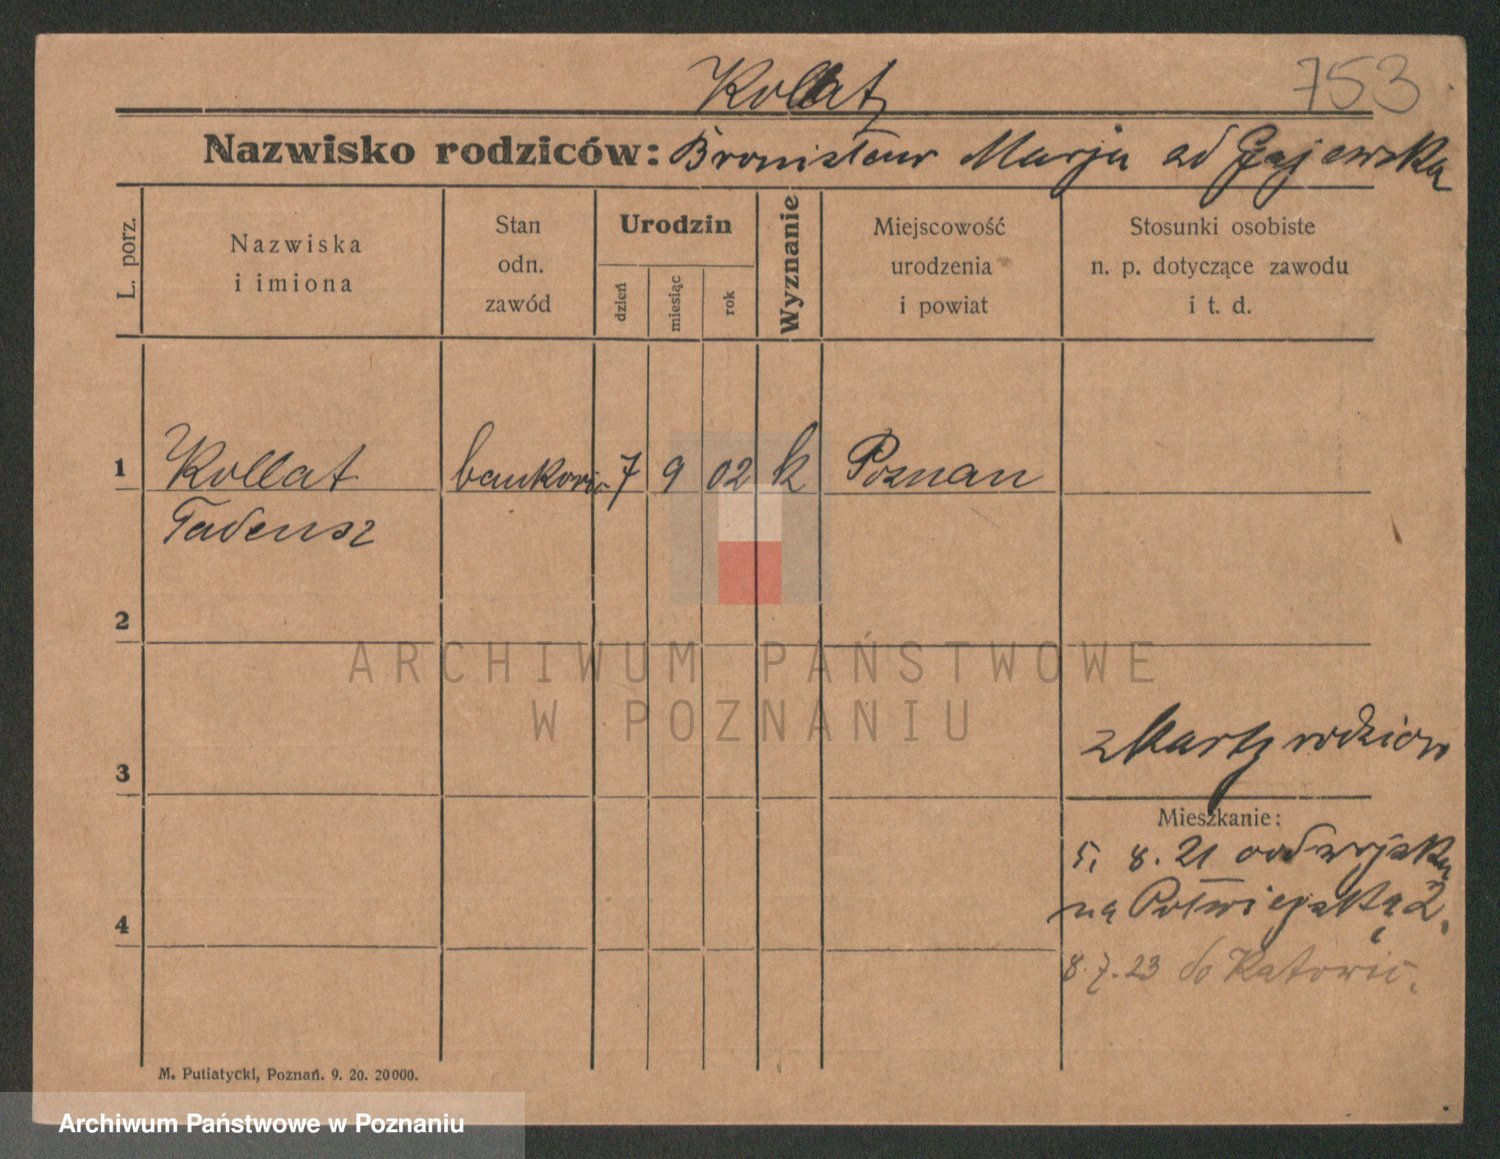 Kollat
753
Nazwisko rodziców: Bronisław Marja od Gajewska
L. porz.
Nazwiska
i imiona
Stan
odn.
zawód
Urodzin
dzień
miesiąc
rok
Wyznanie
Miejscowość
urodzenia
i powiat
Stosunki osobiste
n. p. dotyczące zawodu
i t. d.
1 Kollat bankowiec 7 9 02 k Poznan
Tadeusz
2
ARCHIWUM PAŃSTWOWE
W POZNANIU
z karty rodziców
3
Mieszkanie:
5. 8. 21 od wojska
na Półwiejską 2.
4
8.7.23 do Katowic.
M. Putiatycki, Poznań. 9. 20. 20000.
Archiwum Państwowe w Poznaniu